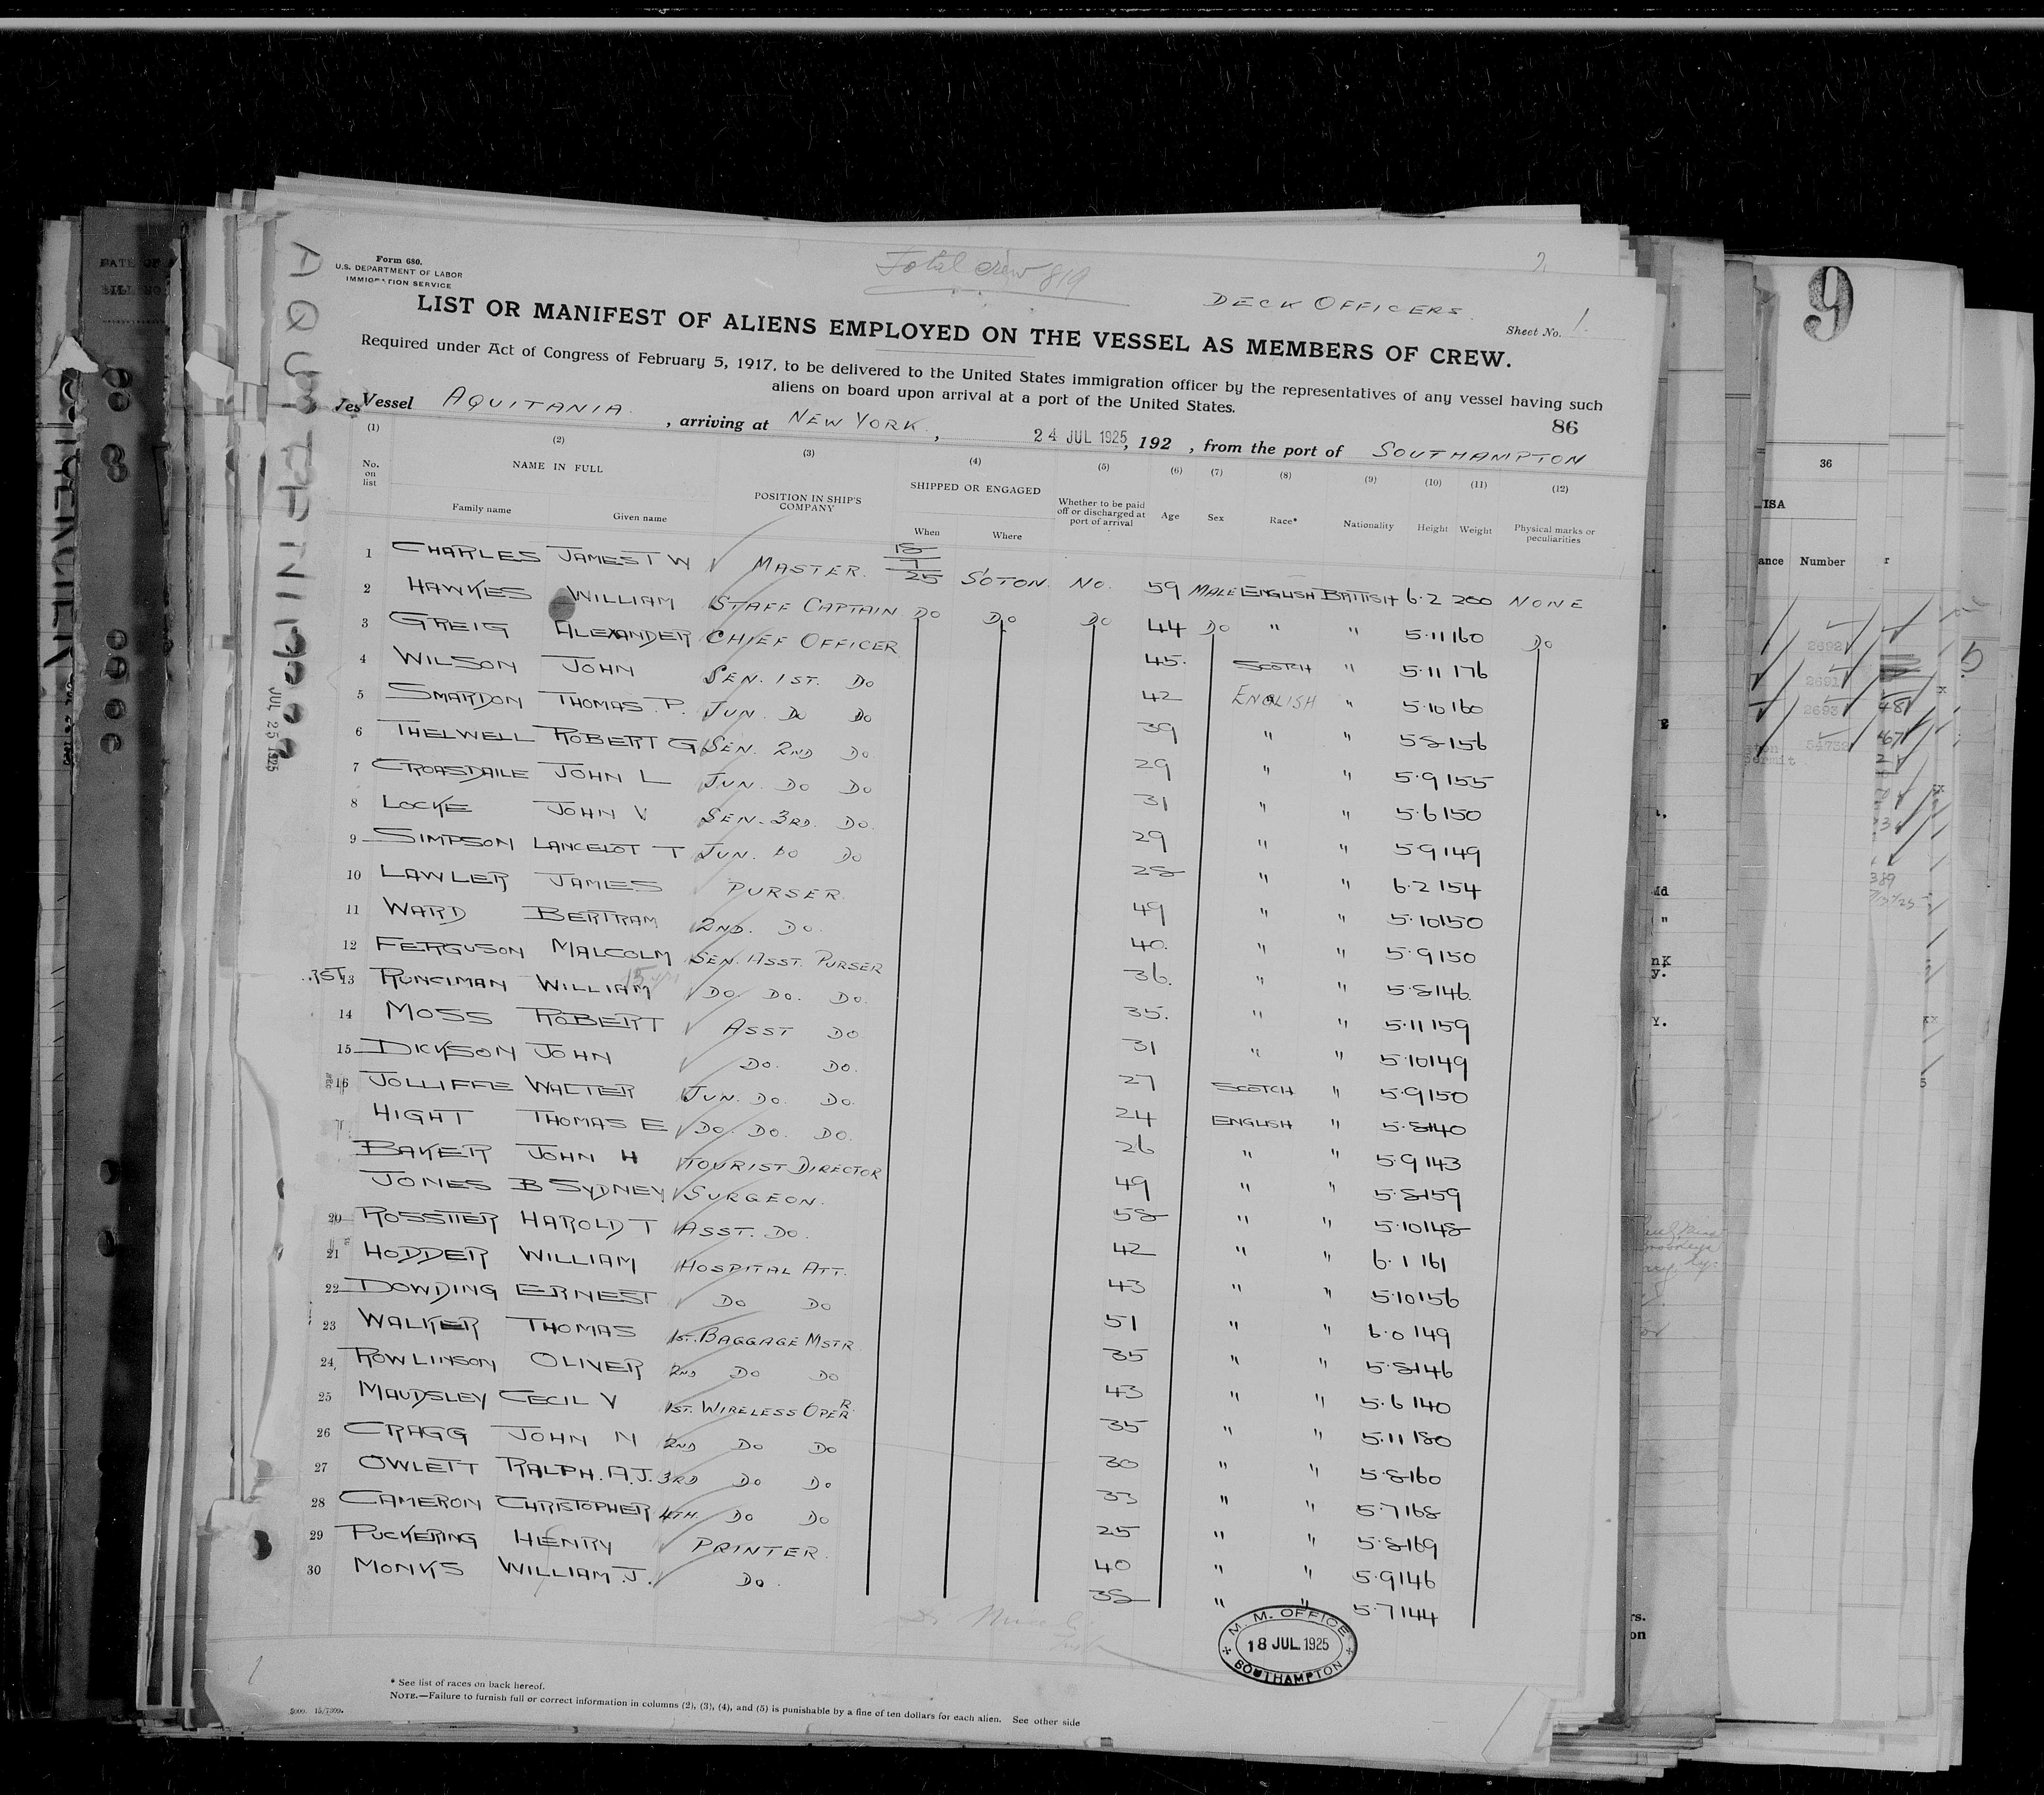 Total crew 819
Form 680.
U.S. DEPARTMENT OF LABOR
IMMIGRATION SERVICE
DECK OFFICERS.
Sheet No. 1.
LIST OR MANIFEST OF ALIENS EMPLOYED ON THE VESSEL AS MEMBERS OF CREW.
Required under Act of Congress of February 5, 1917, to be delivered to the United States immigration officer by the representatives of any vessel having such
aliens on board upon arrival at a port of the United States.
86
Vessel AQUITANIA. , arriving at NEW YORK. , 24 JUL 1925, 192 , from the port of SOUTHAMPTON
(1) (2) (3) (4) (5) (6) (7) (8) (9) (10) (11) (12)
No. on list NAME IN FULL POSITION IN SHIP'S COMPANY SHIPPED OR ENGAGED Whether to be paid off or discharged at port of arrival Age Sex Race* Nationality Height Weight Physical marks or peculiarities
Family name Given name When Where
1 CHARLES JAMES T W MASTER. 18/7/25 S'OTON. NO. 59 MALE ENGLISH BRITISH 6.2 200 NONE
2 HAWKES WILLIAM STAFF CAPTAIN DO DO DO 44 DO " " 5.11 160 DO
3 GREIG ALEXANDER CHIEF OFFICER 45. SCOTCH " 5.11 176
4 WILSON JOHN SEN. 1ST. DO 42 ENGLISH " 5.10 160
5 SMARDON THOMAS. P. JUN. DO DO 39 " " 5.8 156
6 THELWELL ROBERT G SEN. 2ND DO 29 " " 5.9 155
7 CROASDAILE JOHN L JUN. DO DO 31 " " 5.6 150
8 LOCKE JOHN V SEN. 3RD. DO. 29 " " 5.9 149
9 SIMPSON LANCELOT T JUN. DO DO 28 " " 6.2 154
10 LAWLER JAMES PURSER. 49 " " 5.10 150
11 WARD BERTRAM 2ND. DO. 40. " " 5.9 150
12 FERGUSON MALCOLM SEN. ASST. PURSER 36. " " 5.8 146.
13 RUNCIMAN WILLIAM DO. DO. DO. 35. " " 5.11 159
14 MOSS ROBERT ASST DO 31 " " 5.10 149
15 DICKSON JOHN DO. DO. 27 SCOTCH " 5.9 150
16 JOLLIFFE WALTER JUN. DO. DO. 24 ENGLISH " 5.8 140
HIGHT THOMAS E DO. DO. DO. 26 " " 5.9 143
BAKER JOHN H TOURIST DIRECTOR 49 " " 5.8 159
JONES B SYDNEY SURGEON. 58 " " 5.10 148
20 ROSSITER HAROLD T ASST. DO. 42 " " 6.1 161
21 HODDER WILLIAM HOSPITAL ATT. 43 " " 5.10 156
22 DOWDING ERNEST DO DO 51 " " 6.0 149
23 WALKER THOMAS 1ST. BAGGAGE MSTR. 35 " " 5.8 146
24 ROWLINSON OLIVER 2ND DO DO 43 " " 5.6 140
25 MAUDSLEY CECIL V 1ST. WIRELESS OPERR 35 " " 5.11 180
26 CRAGG JOHN N 2ND DO DO 30 " " 5.8 160
27 OWLETT RALPH. A.J. 3RD DO DO 33 " " 5.7 168
28 CAMERON CHRISTOPHER 4TH. DO DO 25 " " 5.8 169
29 PUCKERING HENRY PRINTER. 40 " " 5.9 146
30 MONKS WILLIAM. J. DO. 38 " " 5.7 144
M. M. OFFICE
18 JUL. 1925
SOUTHAMPTON
* See list of races on back hereof.
NOTE.—Failure to furnish full or correct information in columns (2), (3), (4), and (5) is punishable by a fine of ten dollars for each alien. See other side
AQUITANIA
JUL 25 1925
9
36
Number
2692
2691
2693
54732